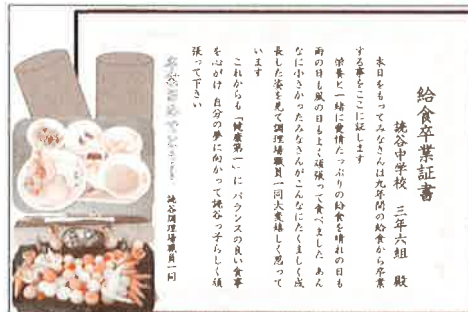 給食卒業証書
読谷中学校　三年六組　殿
本日をもってみなさんは九年間の給食から卒業
する事をここに証します
栄養と一緒に愛情たっぷりの給食を晴れの日も
雨の日も風の日もよく頑張って食べました あん
なに小さかったみなさんがこんなにたくましく成
長した姿を見て調理場職員一同大変嬉しく思って
います
これからも「健康第一」にバランスの良い食事
を心がけ 自分の夢に向かって読谷っ子らしく頑
張って下さい
卒業おめでとうございます
読谷調理場職員一同